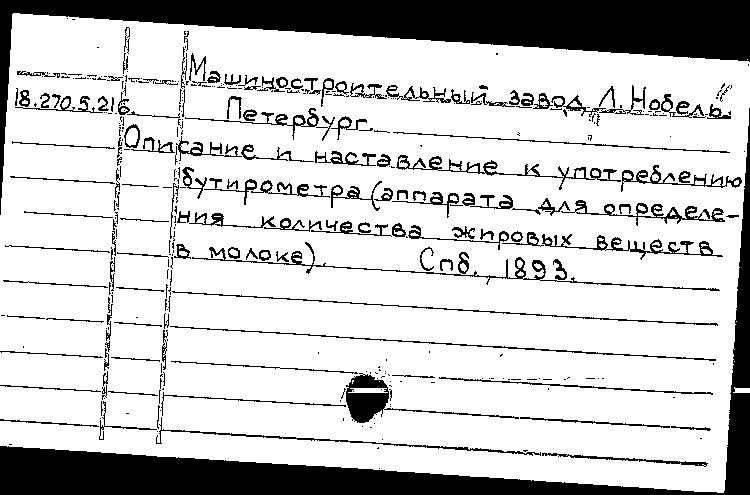 Машиностроительный завод Л. Нобель.
18.270.5.216. Петербург.
Описание и наставление к употреблению
бутирометра (аппарата для определе-
ния количества жировых веществ
в молоке). Спб., 1893.